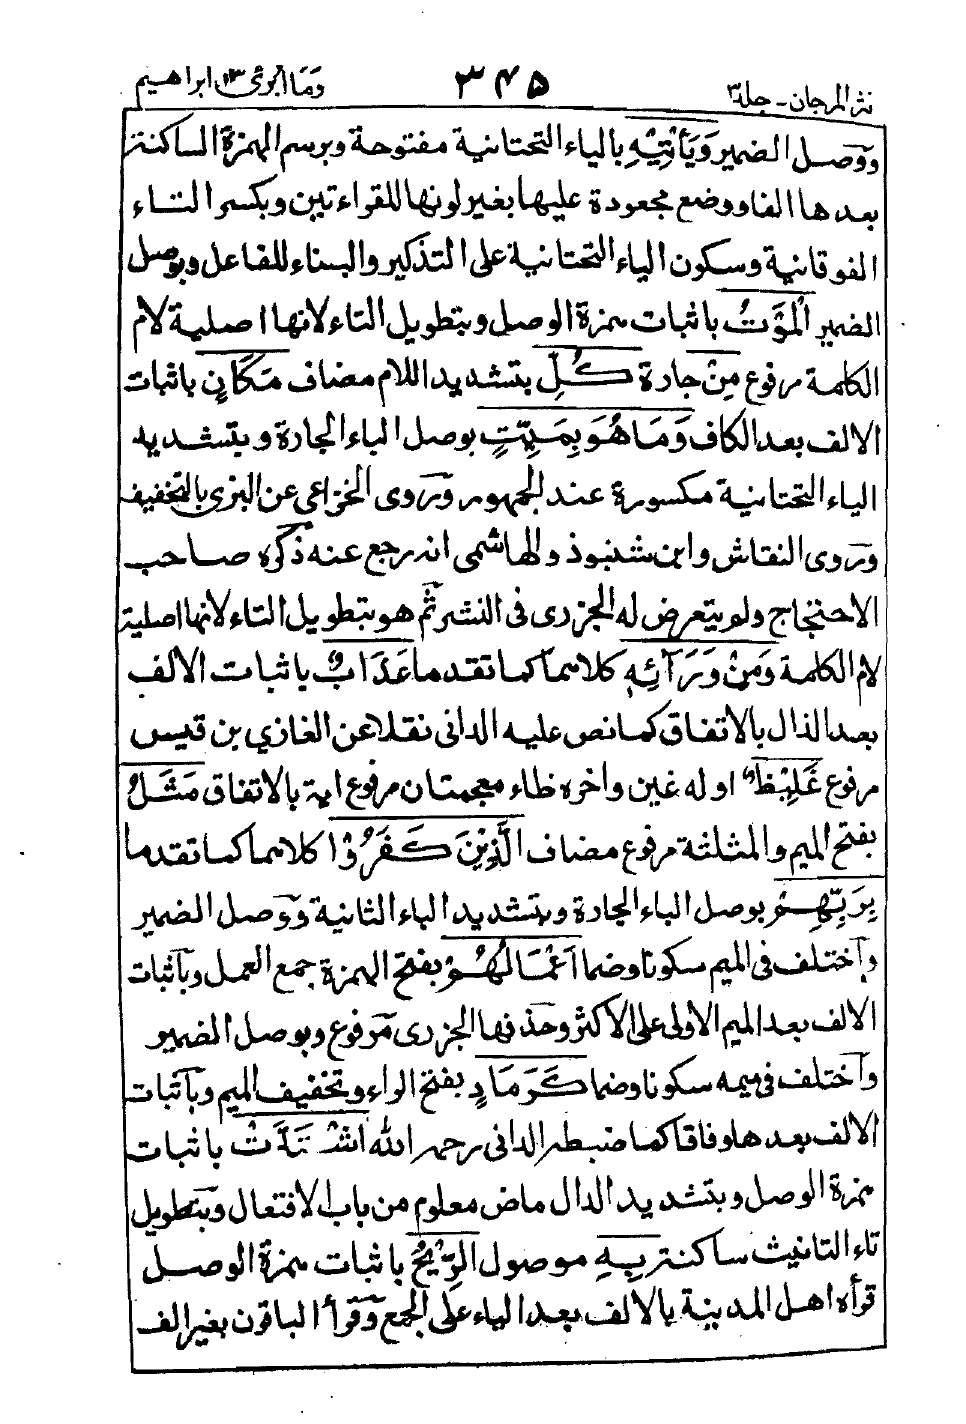 نثر المرجان - جلد ٣ ٣٤٥ وَمَا أبرئ ١٣ ابراهيم
ووصل الضمير وَيَأْتِيْهِ بالياء التحتانية مفتوحة وبرسم الهمزة الساكنة
بعدها الفا ووضع مجعودة عليها بغير لونها للقراءتين وبكسر التاء
الفوقانية وسكون الياء التحتانية على التذكير والبناء للفاعل وبوصل
الضمير الْمَوْتُ باثبات همزة الوصل وبتطويل التاء لانها اصلية لام
الكلمة مرفوع مِنْ جارة كُلِّ بتشديد اللام مضاف مَكَانٍ باثبات
الالف بعد الكاف وَمَا هُوَ بِمَيِّتٍ بوصل الباء الجارة وبتشديد
الياء التحتانية مكسورة عند الجمهور وروى الخزاعى عن البزى بالتخفيف
وروى النقاش وابن شنبوذ والهاشمى انه رجع عنه ذكره صاحب
الاحتجاج ولم يتعرض له الجزرى فى النشر ثم هو بتطويل التاء لانها اصلية
لام الكلمة وَمِنْ وَرَآئِهٖ كلاهما كما تقدما عَذَابٌ باثبات الالف
بعد الذال بالاتفاق كما نص عليه الدانى نقلا عن الغازي بن قيس
مرفوع غَلِيْظٌ اوله غين واخره ظاء معجمتان مرفوع اية بالاتفاق مَثَلُ
بفتح الميم والمثلثة مرفوع مضاف الَّذِيْنَ كَفَرُوْا كلاهما كما تقدما
بِرَبِّهِمْ بوصل الباء الجارة وبتشديد الباء الثانية ووصل الضمير
واختلف فى الميم سكونا وضما اَعْمَالُهُمْ بفتح الهمزة جمع العمل وباثبات
الالف بعد الميم الاولى على الاكثر وحذفها الجزرى مرفوع وبوصل الضمير
واختلف فى ميمه سكونا وضما كَرَمَادٍ بفتح الراء وتخفيف الميم وباثبات
الالف بعدها وفاقا كما ضبطه الدانى رحمه الله اشْتَدَّتْ باثبات
همزة الوصل وبتشديد الدال ماض معلوم من باب الافتعال وبتطويل
تاء التانيث ساكنة بِهِ موصول الرِّيْحُ باثبات همزة الوصل
قرأه اهل المدينة بالالف بعد الياء على الجمع وقرأ الباقون بغير الف